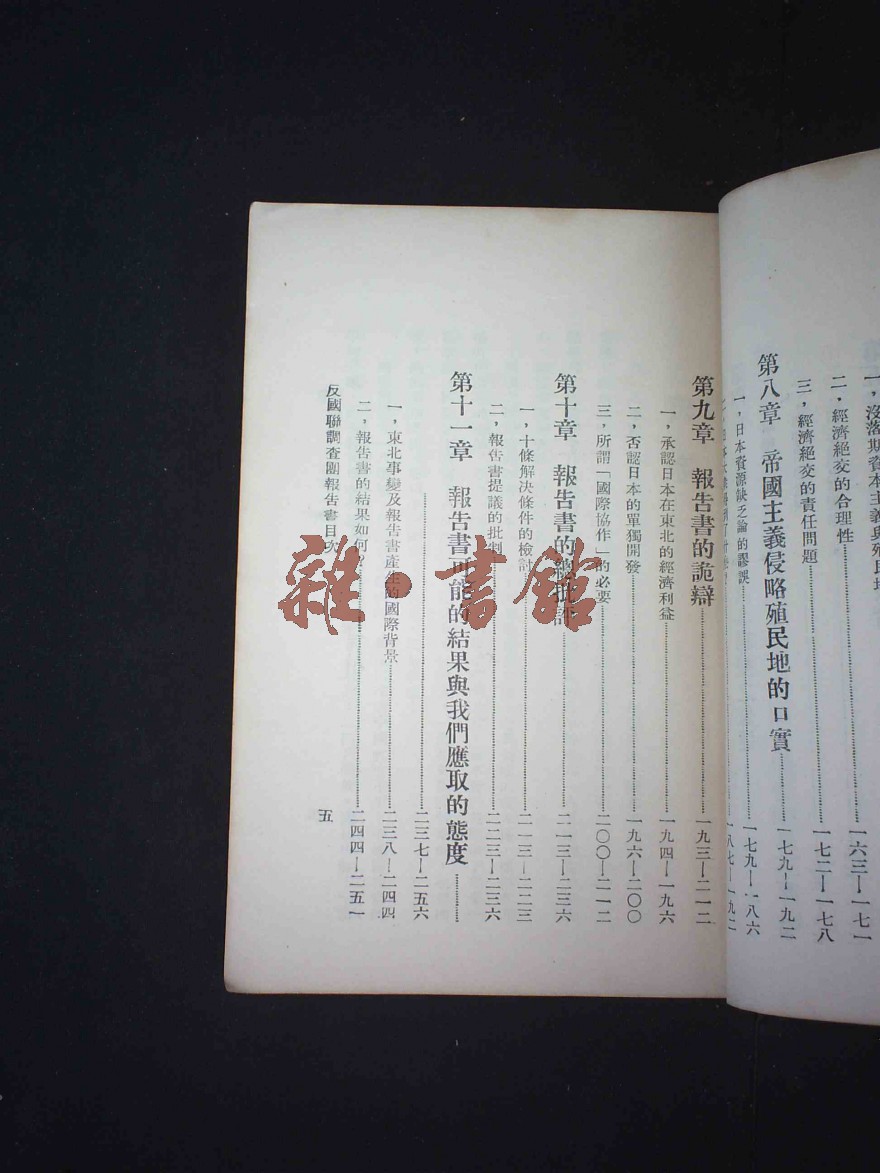 二，經濟絕交的合理性……一六三—一七一
三，經濟絕交的責任問題……一七二—一七八
第八章　帝國主義侵略殖民地的口實……一七九—一九二
一，日本資源缺乏論的謬誤……一七九—一八六
一八七—一九二
第九章　報告書的詭辯……一九三—二一二
一，承認日本在東北的經濟利益……一九四—一九六
二，否認日本的單獨開發……一九六—二〇〇
三，所謂「國際協作」的必要……二〇〇—二一二
第十章　報告書的……二一三—二三六
一，十條解決條件的檢討……二一三—二二三
二，報告書提議的批判……二二三—二三六
第十一章　報告書可能的結果與我們應取的態度……
……二三七—二五六
一，東北事變及報告書產生的國際背景……二三八—二四四
二，報告書的結果如何？……二四四—二五一
反國聯調查團報告書目次
五
雜·書館